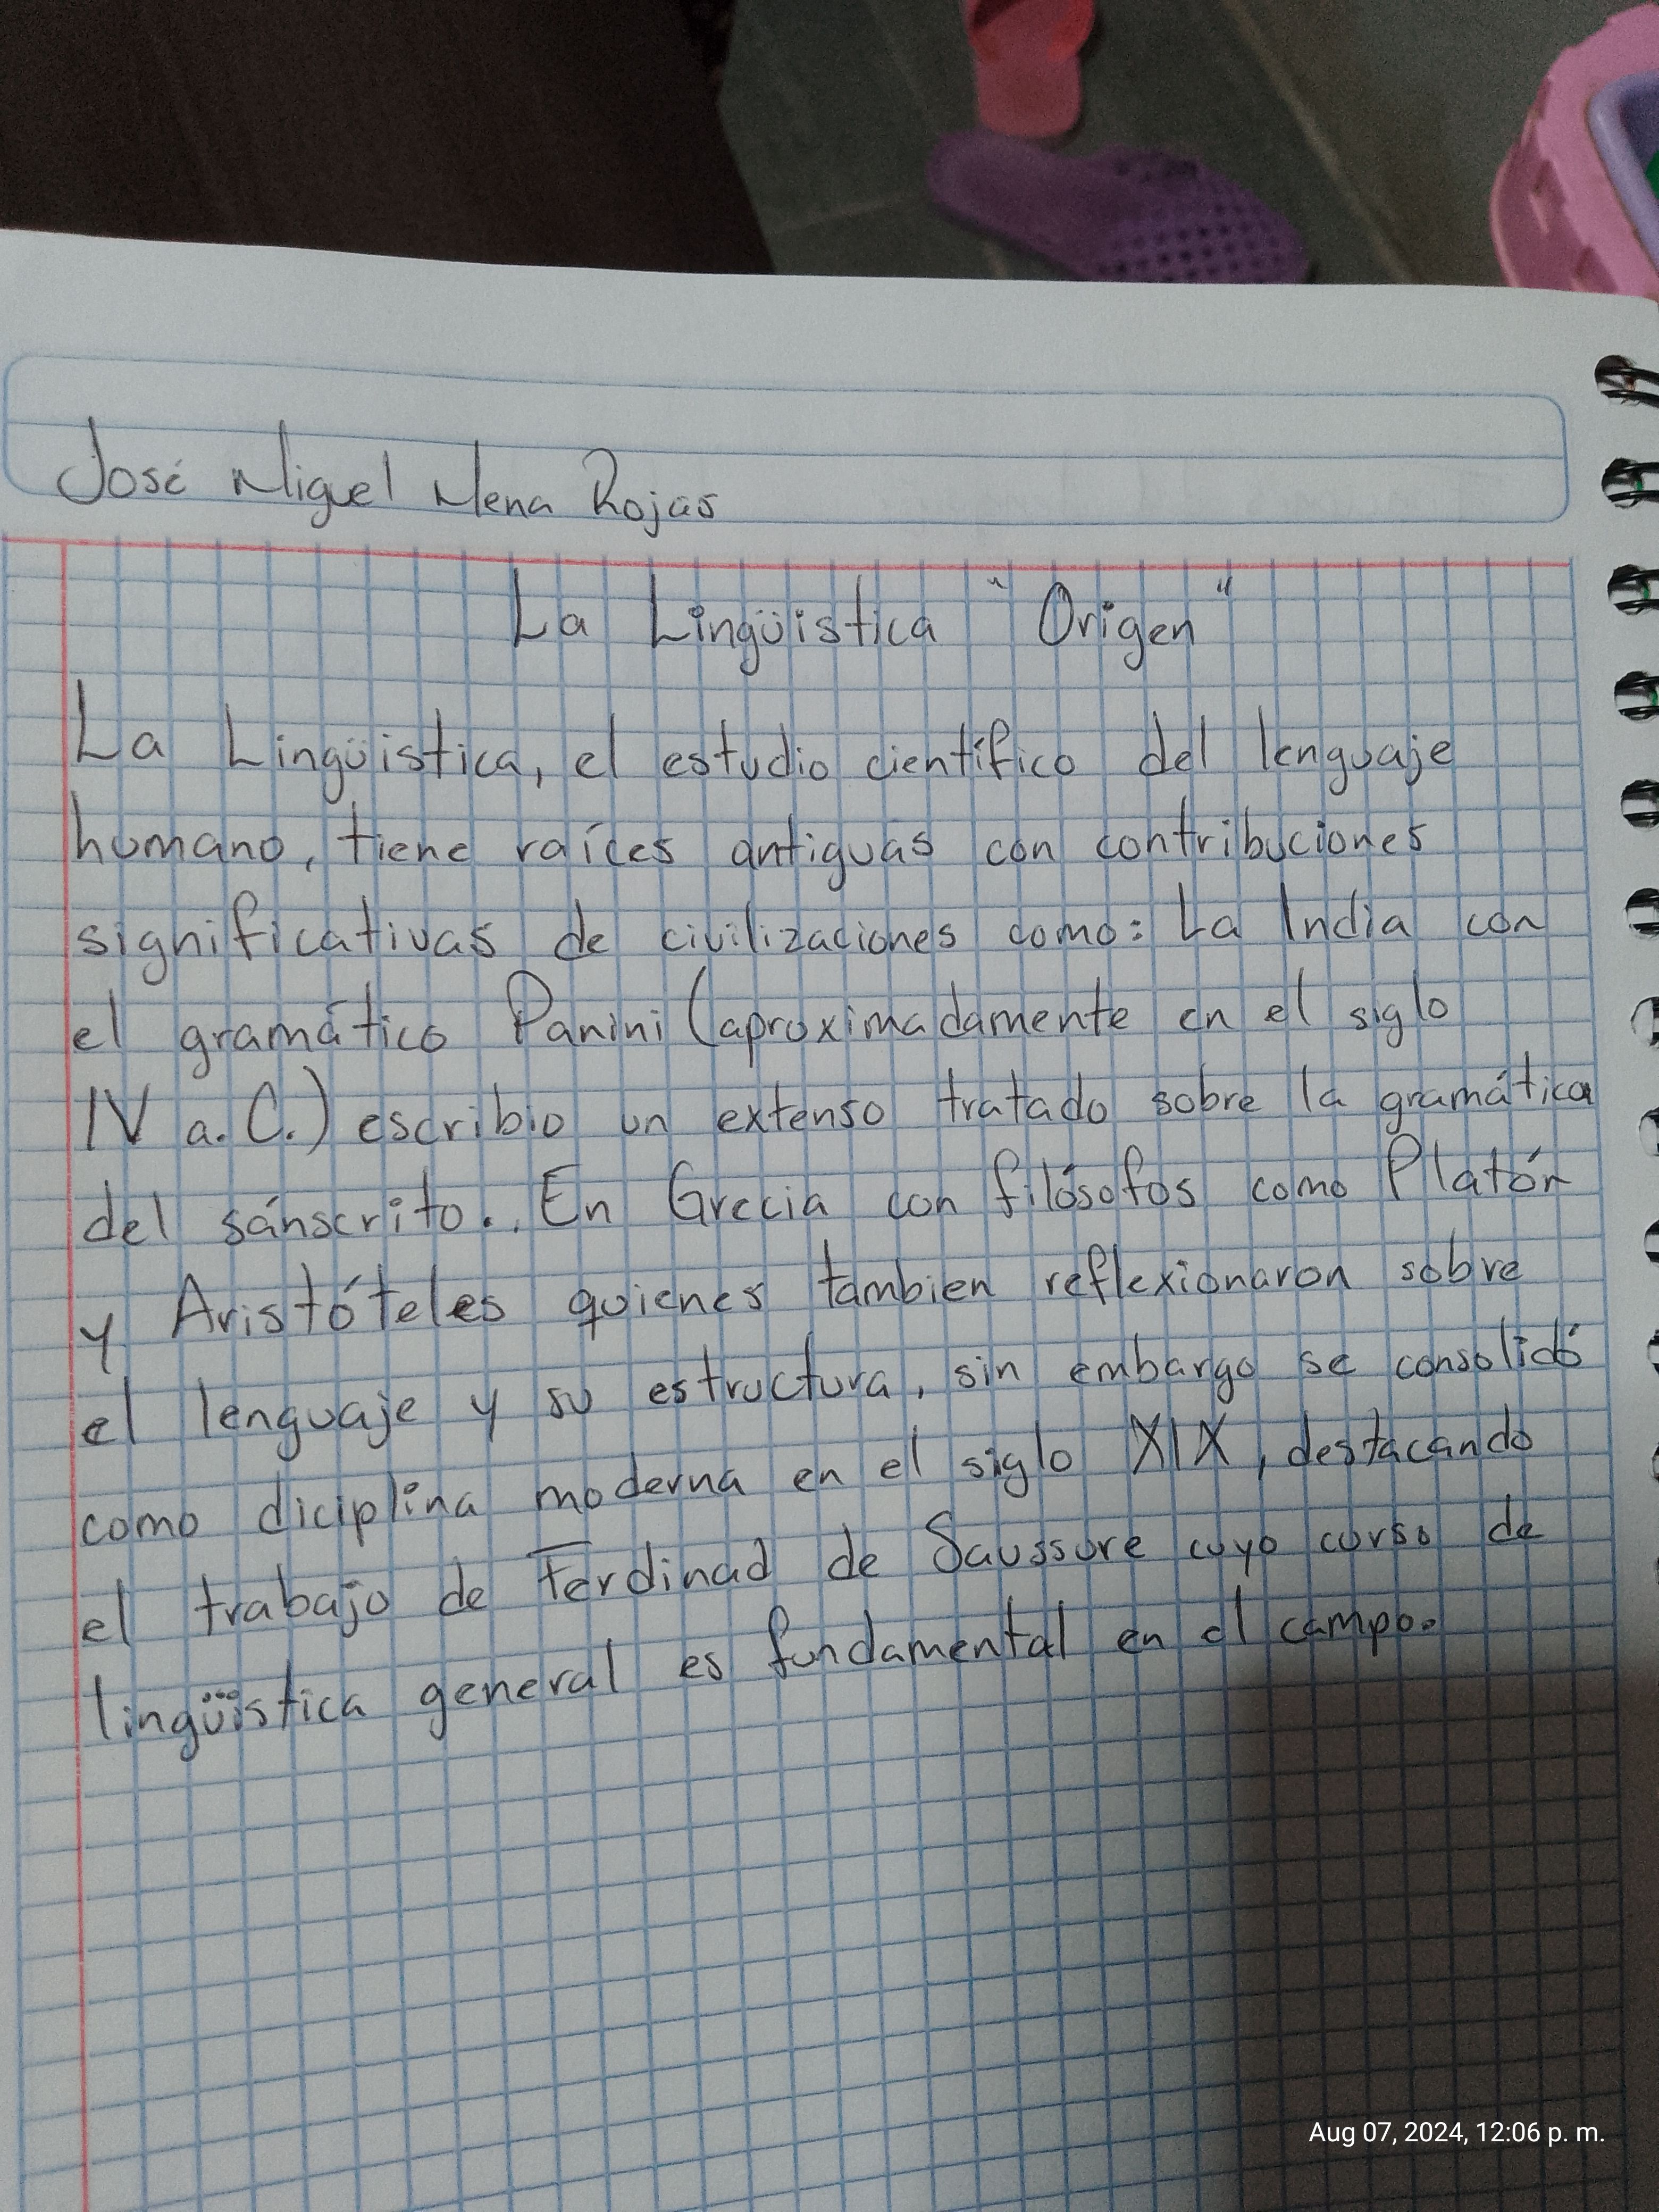 José Miguel Mena Rojas
La Lingüistica "Origen"
La Lingüistica, el estudio científico del lenguaje
humano, tiene raíces antiguas con contribuciones
significativas de civilizaciones como: La India con
el gramático Panini (aproximadamente en el siglo
IV a.C.) escribio un extenso tratado sobre la gramática
del sánscrito.. En Grecia con filósofos como Platón
y Aristóteles quienes tambien reflexionaron sobre
el lenguaje y su estructura, sin embargo se consolidó
como diciplina moderna en el siglo XIX, destacando
el trabajo de Ferdinad de Saussure cuyo curso de
lingüistica general es fundamental en el campo.
Aug 07, 2024, 12:06 p. m.